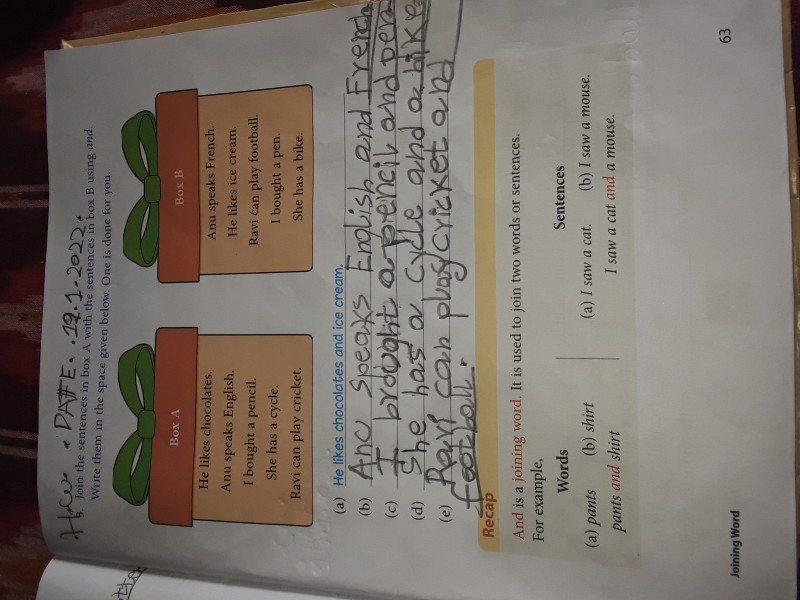 H.W. DATE. 19.1.2022.
b. Join the sentences in box A with the sentences in box B using and.
Write them in the space given below. One is done for you.
Box A
He likes chocolates.
Anu speaks English.
I bought a pencil.
She has a cycle.
Ravi can play cricket.
Box B
Anu speaks French.
He likes ice cream.
Ravi can play football.
I bought a pen.
She has a bike.
(a) He likes chocolates and ice cream.
(b) Anu speaks English and French
(c) I brought a pencil and pen
(d) She has a cycle and a bike
(e) Ravi can play cricket and
football.
Recap
And is a joining word. It is used to join two words or sentences.
For example,
Words
(a) pants (b) shirt
pants and shirt
Sentences
(a) I saw a cat. (b) I saw a mouse.
I saw a cat and a mouse.
Joining Word
63